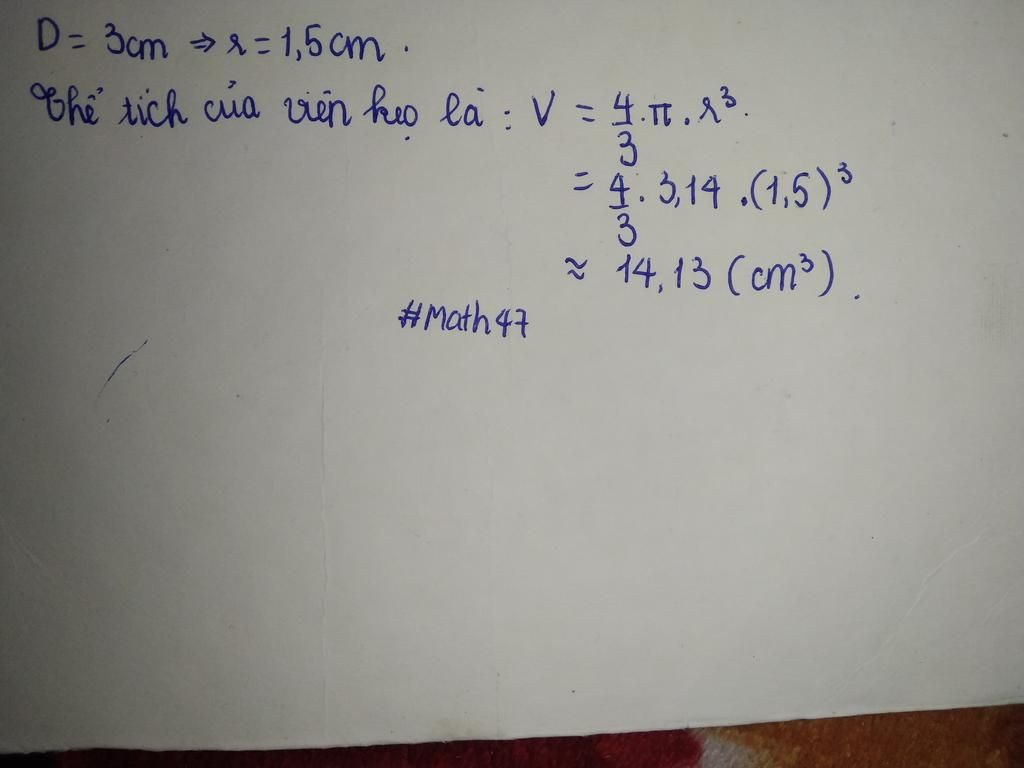 D = 3cm ⇒ r = 1,5cm.
Thể tích của viên kẹo là : V = 4/3 . π . r³.
= 4/3 . 3,14 . (1,5)³
≈ 14,13 (cm³).
#Math47